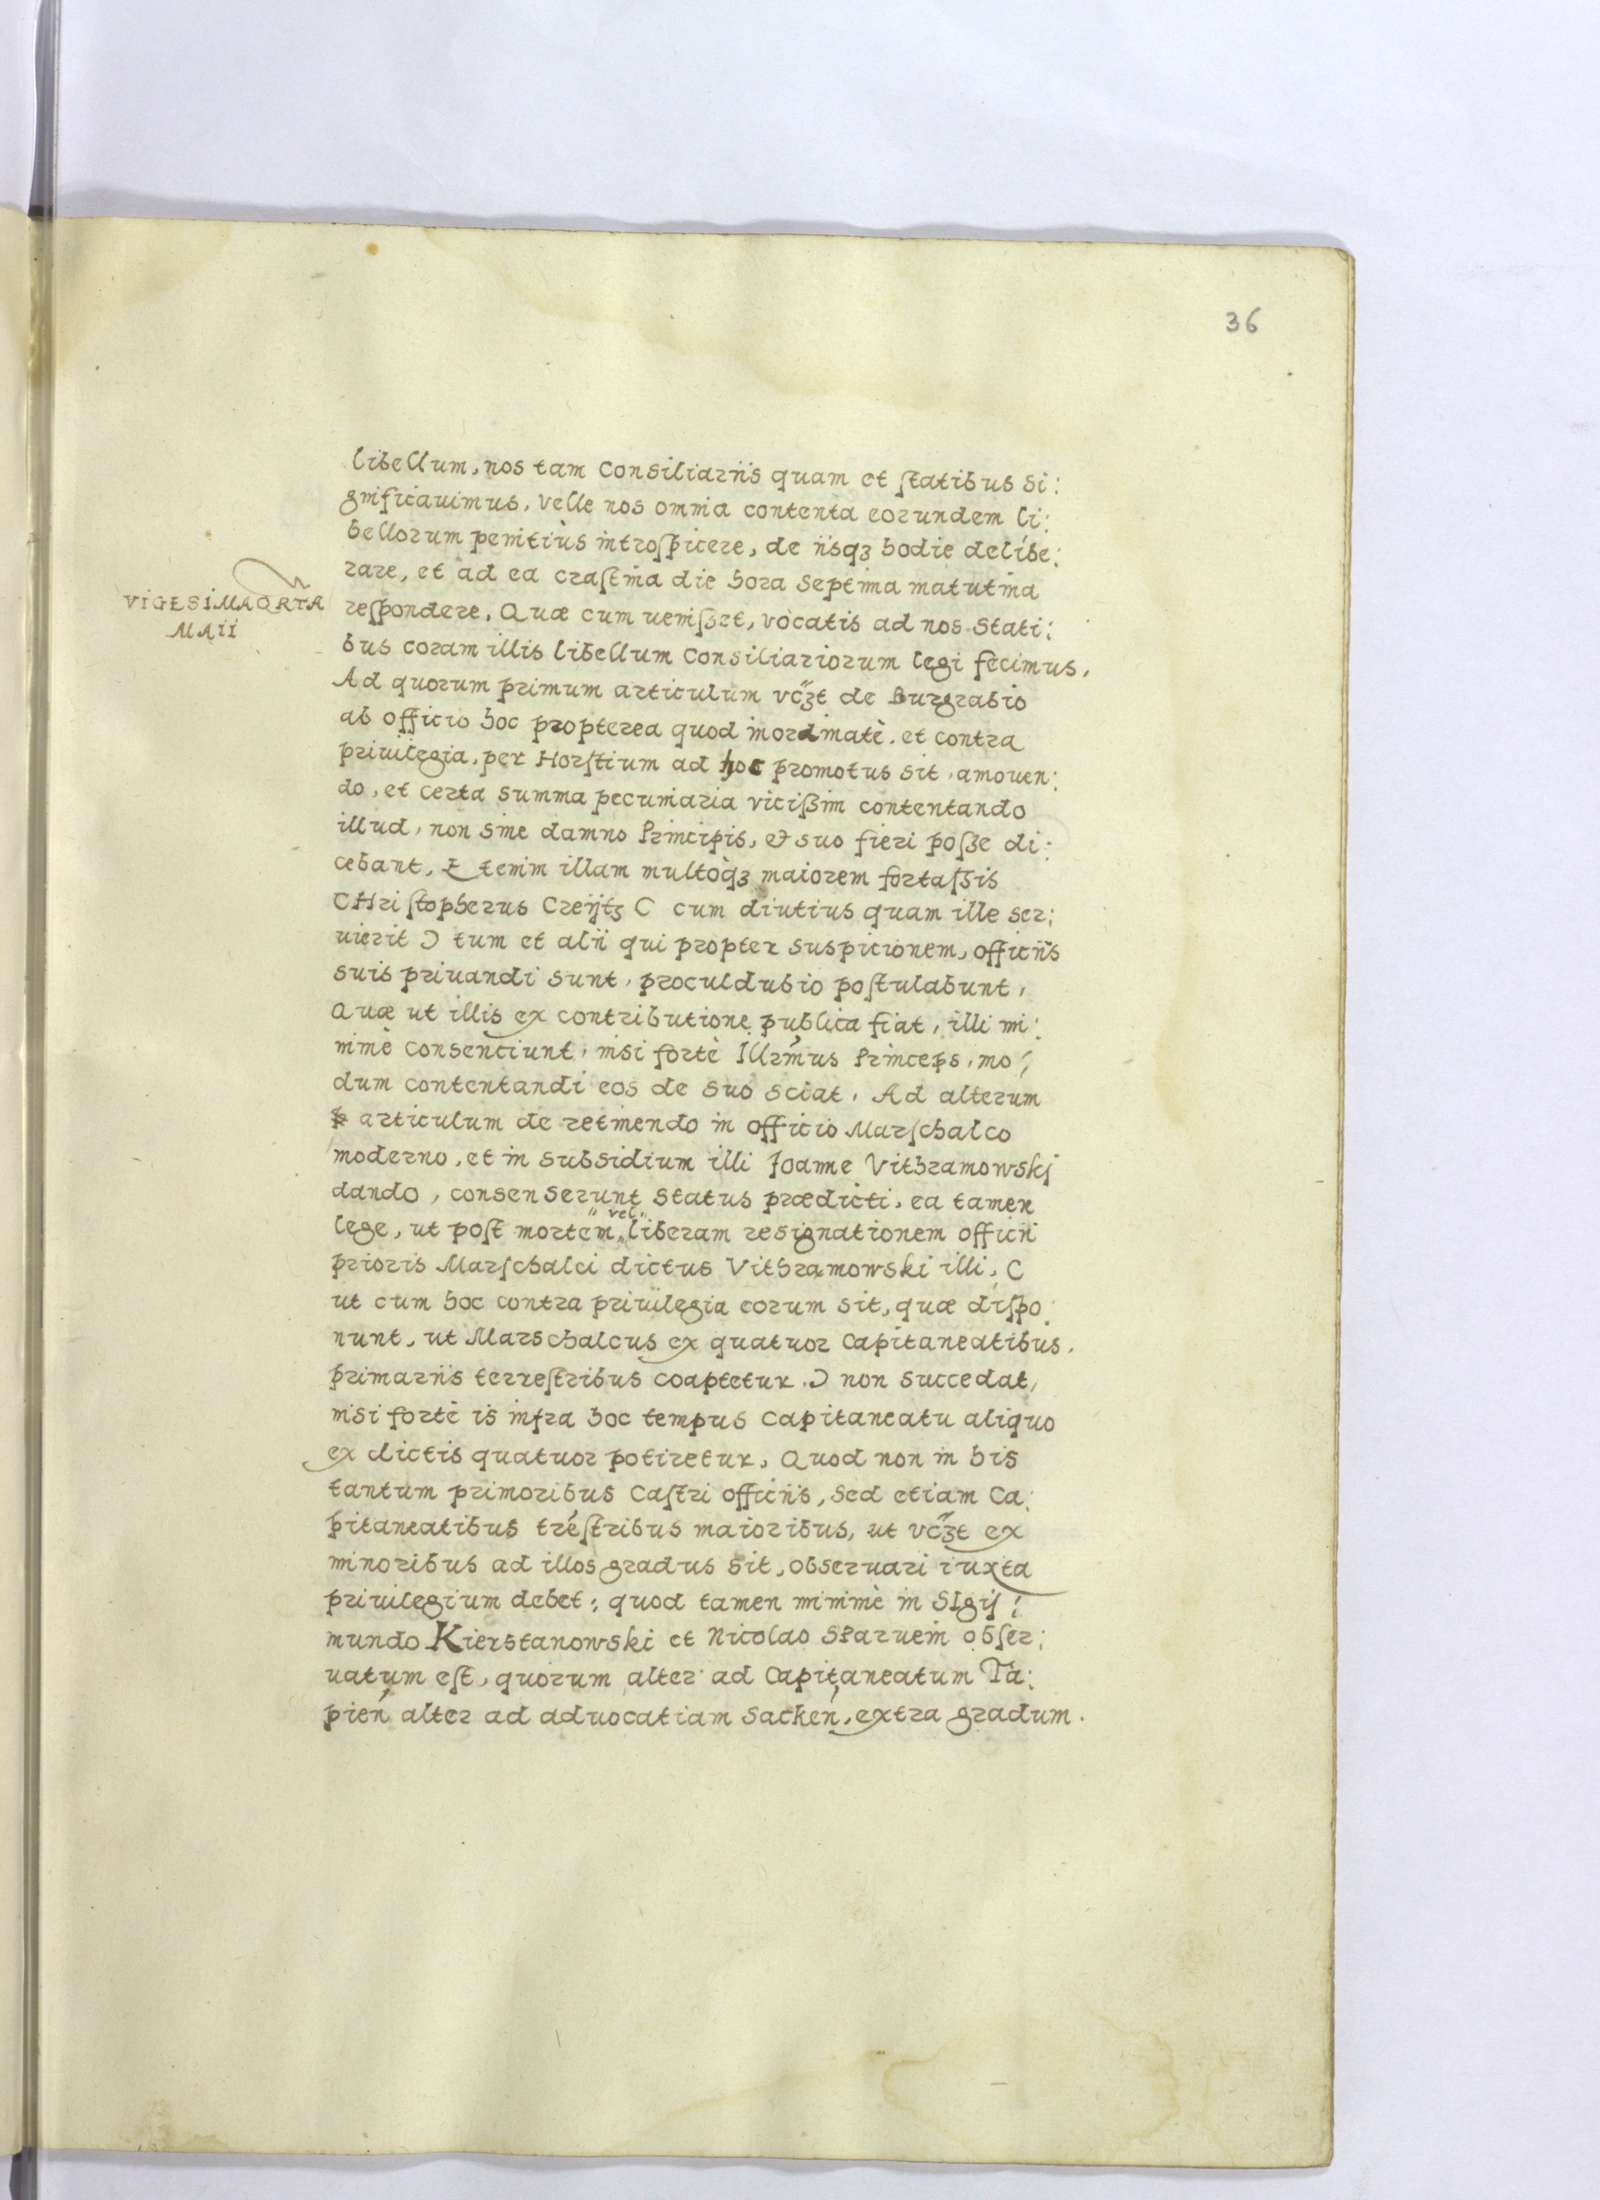 36
libellum, nos tam Consiliarijs quam et ſtatibus si:
gnificauimus, velle nos omnia contenta eorundem li:
bellorum penitiùs introſpicere, de ijsqꝫ hodie delibe:
rare, et ad ea craſtina die hora septima matutina
VIGESIMAQRTA
MAII
reſpondere, Quæ cum ueniſset, vocatis ad nos Stati:
bus coram illis libellum Consiliariorum legi fecimus,
Ad quorum primum articulum vcꝫt de Burgrabio
ab officio hoc propterea quod inordinatè, et contra
priuilegia, per Horſtium ad hoc promotus sit, amouen:
do, et certa summa pecuniaria vicißim contentando
illud, non sine damno Principis, & suo fieri poſse di:
cebant, Etenim illam multoqꝫ maiorem fortaſsis
CHriſtopherus Creijtꝫ C cum diutius quam ille ser:
uierit Ɔ tum et alij qui propter suspicionem, officijs
suis priuandi sunt, proculdubio poſtulabunt,
Quæ ut illis ex contributione publica fiat, illi mi:
nimè consentiunt, nisi fortè Illrmus Princeps, mo:
dum contentandi eos de suo sciat, Ad alterum
articulum de retinendo in officio Marſchalco
moderno, et in subsidium illi Joanne Vithramowskj
dando, consenserunt Status prædicti, ea tamen
lege, ut poſt mortem „vel„ liberam resignationem officij
prioris Marſchalci dictus Vithramowski illi, C
ut cum hoc contra priuilegia eorum sit, quæ diſpo:
nunt, ut Marschalcus ex quatuor Capitaneatibus,
primarijs terreſtribus coaptetur Ɔ non succedat,
nisi fortè is infra hoc tempus Capitaneatu aliquo
ex dictis quatuor potiretur, Quod non in his
tantùm primoribus Caſtri officijs, sed etiam Ca:
pitaneatibus tréſtribus maioribus, ut vcꝫt ex
minoribus ad illos gradus sit, obseruari iuxta
priuilegium debet: quod tamen minimè in SIgiſ:
mundo Kierstanowski et Nicolao Sparuein obſer:
uatum eſt, quorum alter ad Capitaneatum Ta:
pień alter ad aduocatiam Sackeń, extra gradum.